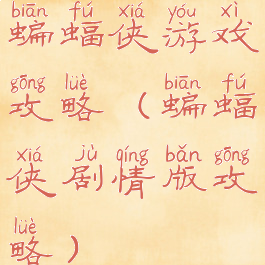 biān fú xiá yóu xì
蝙蝠侠游戏
gōng lüè biān fú
攻略（蝙蝠
xiá jù qíng bǎn gōng
侠剧情版攻
lüè
略）